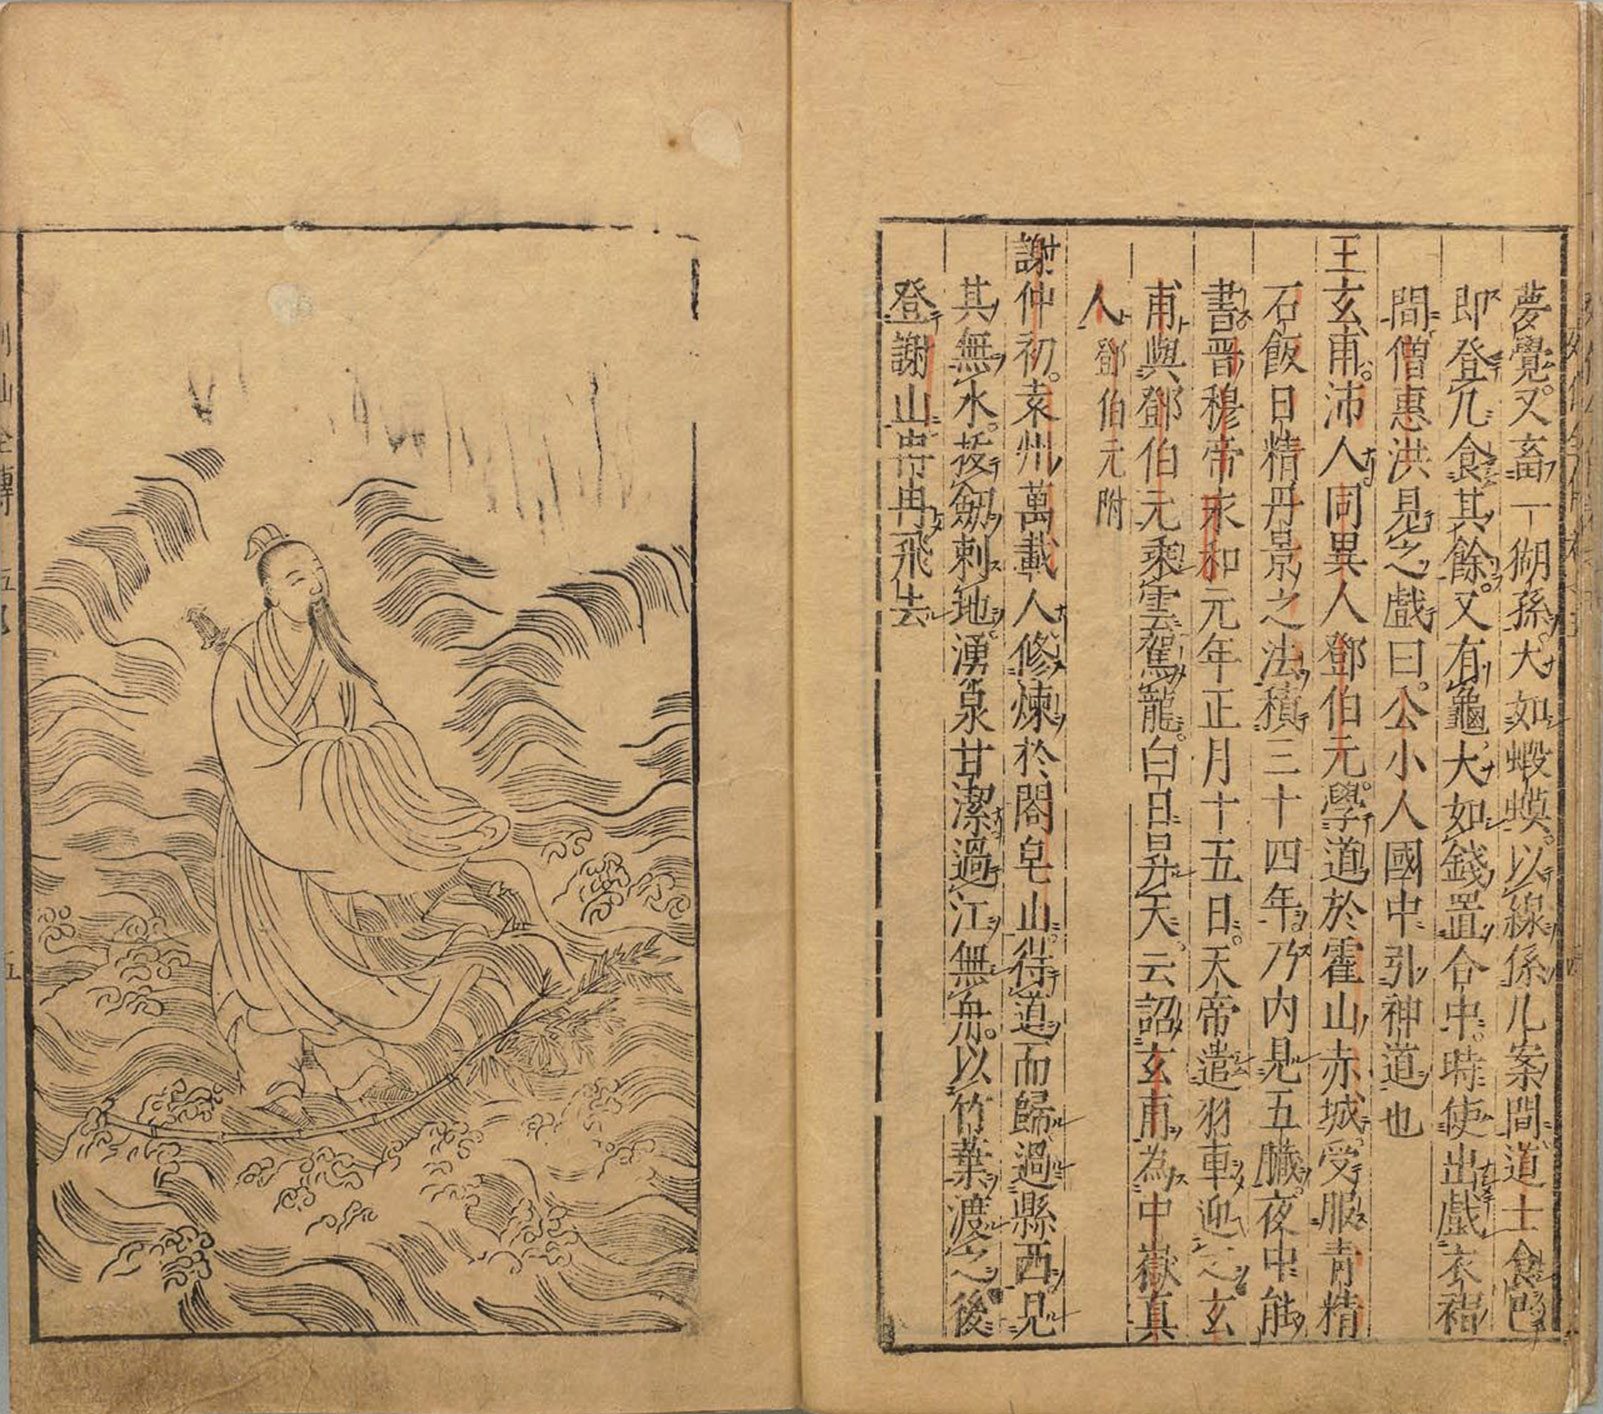 夢覺又畜一猢孫大如蝦蟆以線係几案間道士食已
即登几食其餘又有龜大如錢置合中時使出戲衣褶
間僧惠洪見之戲曰公小人國中引神道也
王玄甫沛人同異人鄧伯元學道於霍山赤城受服青精
石飯日精丹景之法積三十四年乃內見五臟夜中能
書晋穆帝永和元年正月十五日天帝遣羽車迎之玄
甫與鄧伯元乘雲駕龍白日昇天云詔玄甫為中嶽真
人 鄧伯元附
謝仲初袁州萬載人修煉於閤皂山得道而歸過縣西見
其無水拔劍刺地湧泉甘潔過江無舟以竹葉渡之後
登謝山冉冉飛去
列仙全傳 五卷 五